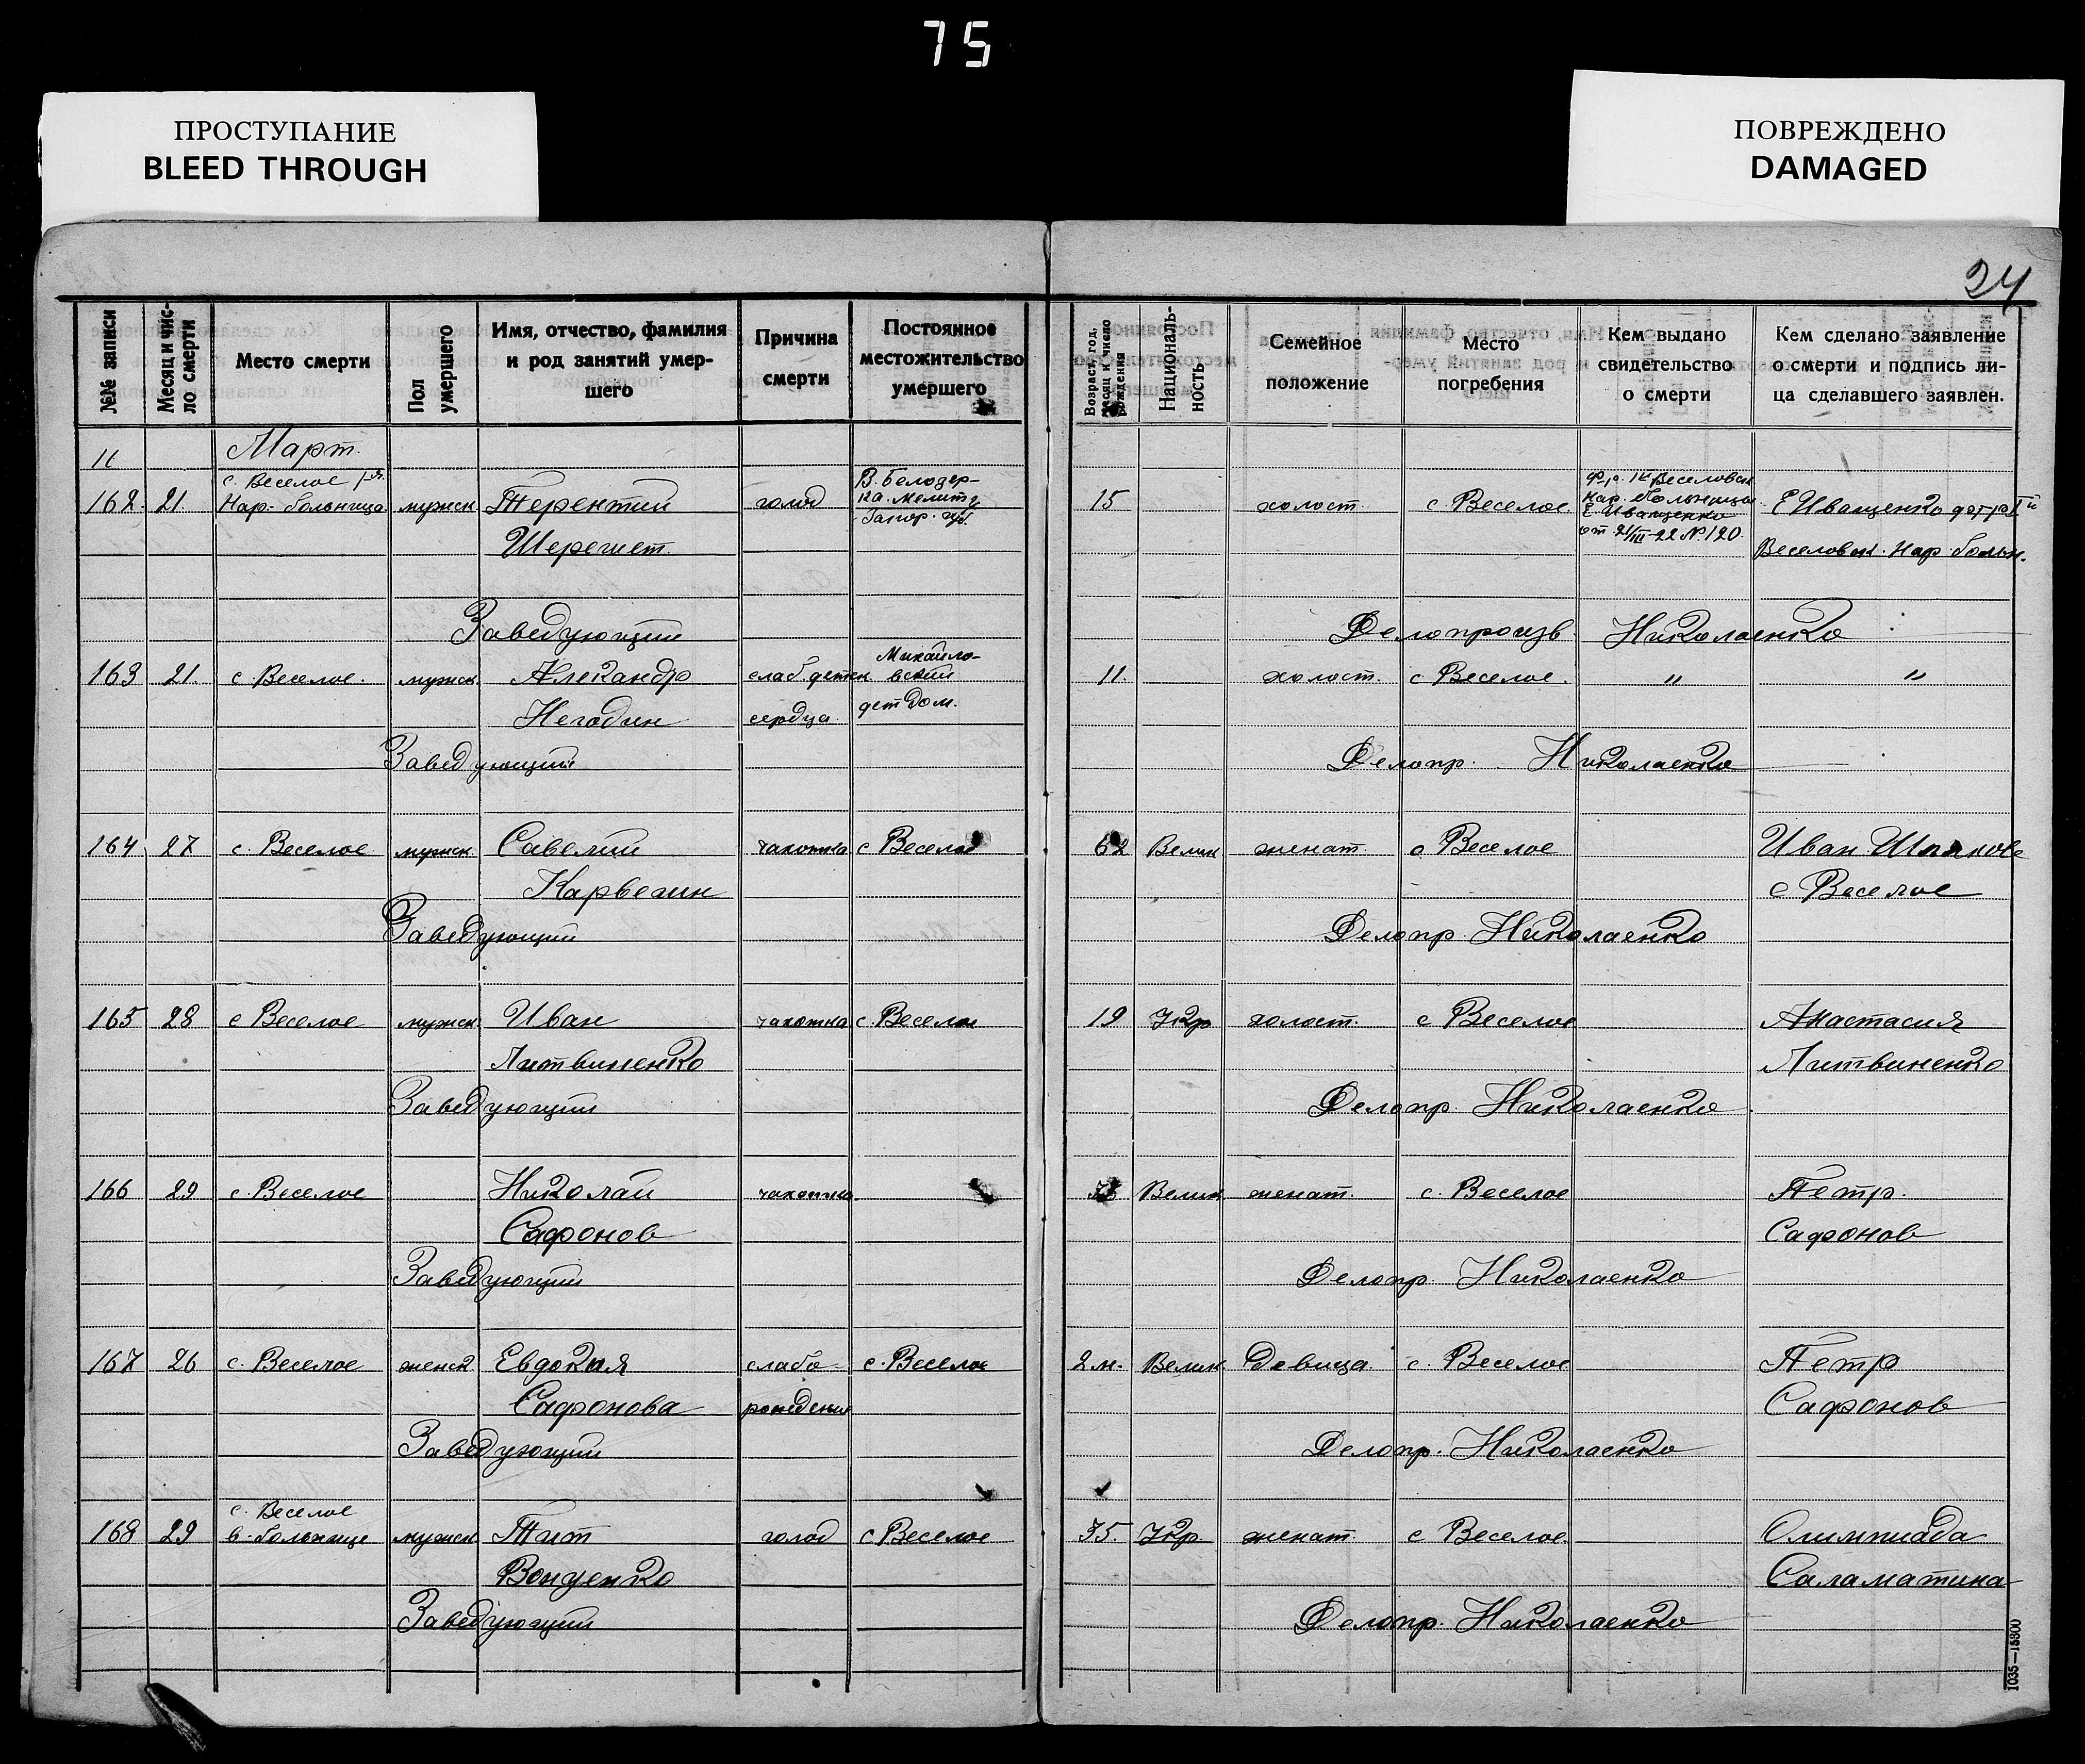 75
ПРОСТУПАНИЕ
BLEED THROUGH
ПОВРЕЖДЕНО
DAMAGED
24
№№ записи
Месяц и чис-
ло смерти
Место смерти
Пол
умершего
Имя, отчество, фамилия
и род занятий умер-
шего
Причина
смерти
Постоянное
местожительство
умершего
Возраст, год,
месяц и число
рождения
Националь-
ность
Семейное
положение
Место
погребения
Кем выдано
свидетельство
о смерти
Кем сделано заявление
о смерти и подпись ли-
ца сделавшего заявлен.
11 Март.
с. Веселое 1-я
162. 21. Нар. больница мужск Терентий голод
В. Белозер-
ка. Мелит у
Запор. губ.
Шерешет.
15 холост. с Веселое.
Веселовск
Нар. больницы
Е Иващенко
от 21/III-22 № 120.
Е Иващенко
Веселовск. Нар. больн.
Заведующий Делопроизв. Николаенко
163 21. с Веселое. мужск. Александр слаб детск. Михайло-
вский
Негодин сердца дет Дом.
11. холост. с Веселое. " "
Заведующий Делопр. Николаенко
164 27 с. Веселое мужск Савелий чахотка с Веселое 62 Велик женат. с Веселое Иван
с Веселое
Заведующий Делопр. Николаенко
165 28 с Веселое мужск. Иван чахотка с Веселое 19 Укр холост. с Веселое Анастасия
Литвиненко Литвиненко
Заведующий Делопр. Николаенко
166 29 с. Веселое Николай чахотка. Велик женат. с. Веселое Петр.
Сафонов Сафонов
Заведующий Делопр. Николаенко
167 26 с. Веселое женск Евдокия слабо- с. Веселое 2 м. Велик Девица с. Веселое Петр
Сафонова рождения Сафонов
Заведующий Делопр. Николаенко
с. Веселое
168 29 в-больнице мужск Тит голод с Веселое 35. Укр. женат. с Веселое. Олимпиада
Вонценко Саламатина
Заведующий Делопр. Николаенко
1035—15800